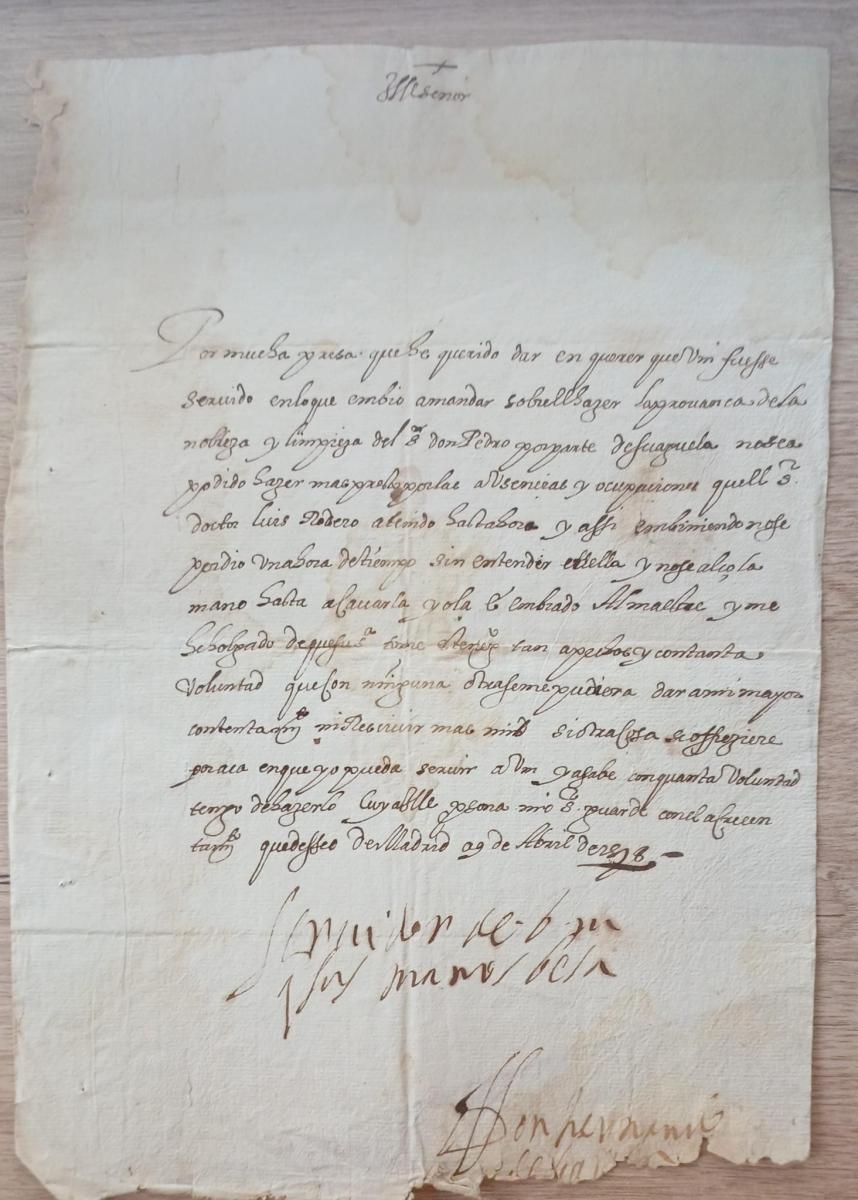 Ill señor
Por mucha presa que he querido dar en querer que Vm fuesse
seruido en lo que embio a mandar sobrell hazer la prouança de la
nobleza y limpieza del s.r don Pedro por parte de suaguela nosea
podido hazer mas presto por las a Vsencias y ocupaciones quell s.r
doctor luis Rodero a tenido hastahora y assi em biniendo nose
perdio Vnahora de tiempo sin entender en ella y nose alço la
mano hasta a Cauarla y ola é embiado Al maestre y me
he holgado de que su s.a tome tan a pechos y con tanta
Voluntad que Con ninguna otra seme pudiera dar a mi mayor
contentam.to ni Resciuir mas mrd si otra Cosa se offreziere
por aca en que yo pueda seruir a Vm ya sabe con quanta Voluntad
tengo de hazerlo Cuya Ille persona nro s.r guarde con el a Crecen
tam.to que desseo de Madrid a 9 de Abril de 1578
seruidor de v m
q sus manos besa
Don hernando